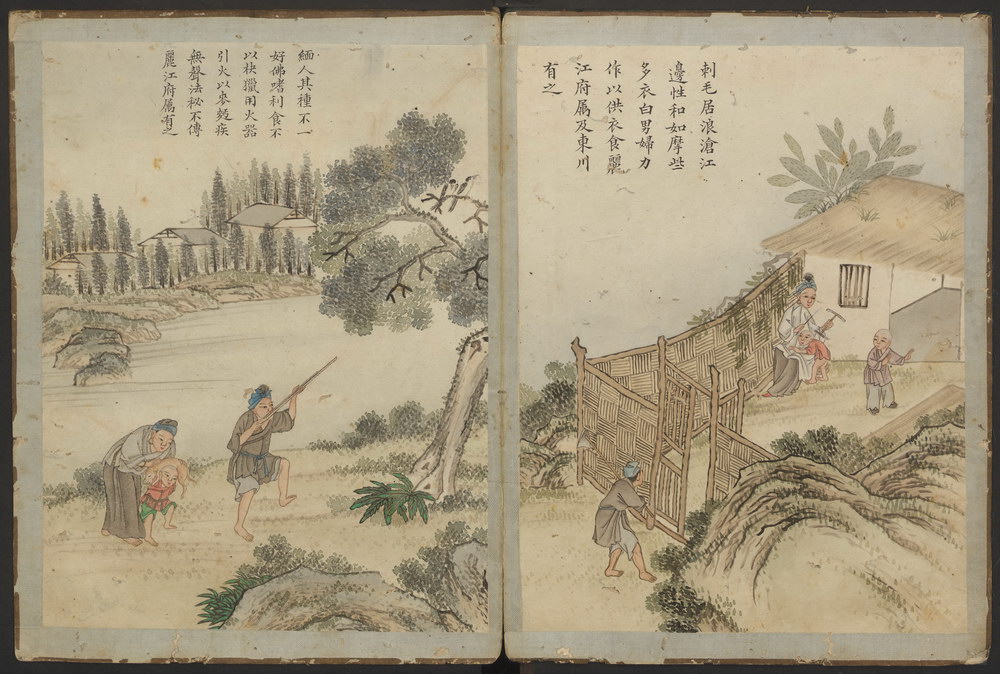 刺毛居浪滄江
邊性和如摩些
多衣白男婦力
作以供衣食麗
江府属及東川
有之
緬人其種不一
好佛嗜利食不
以秧獵用火器
引火以麥麫疾
無聲法秘不傳
麗江府属有之